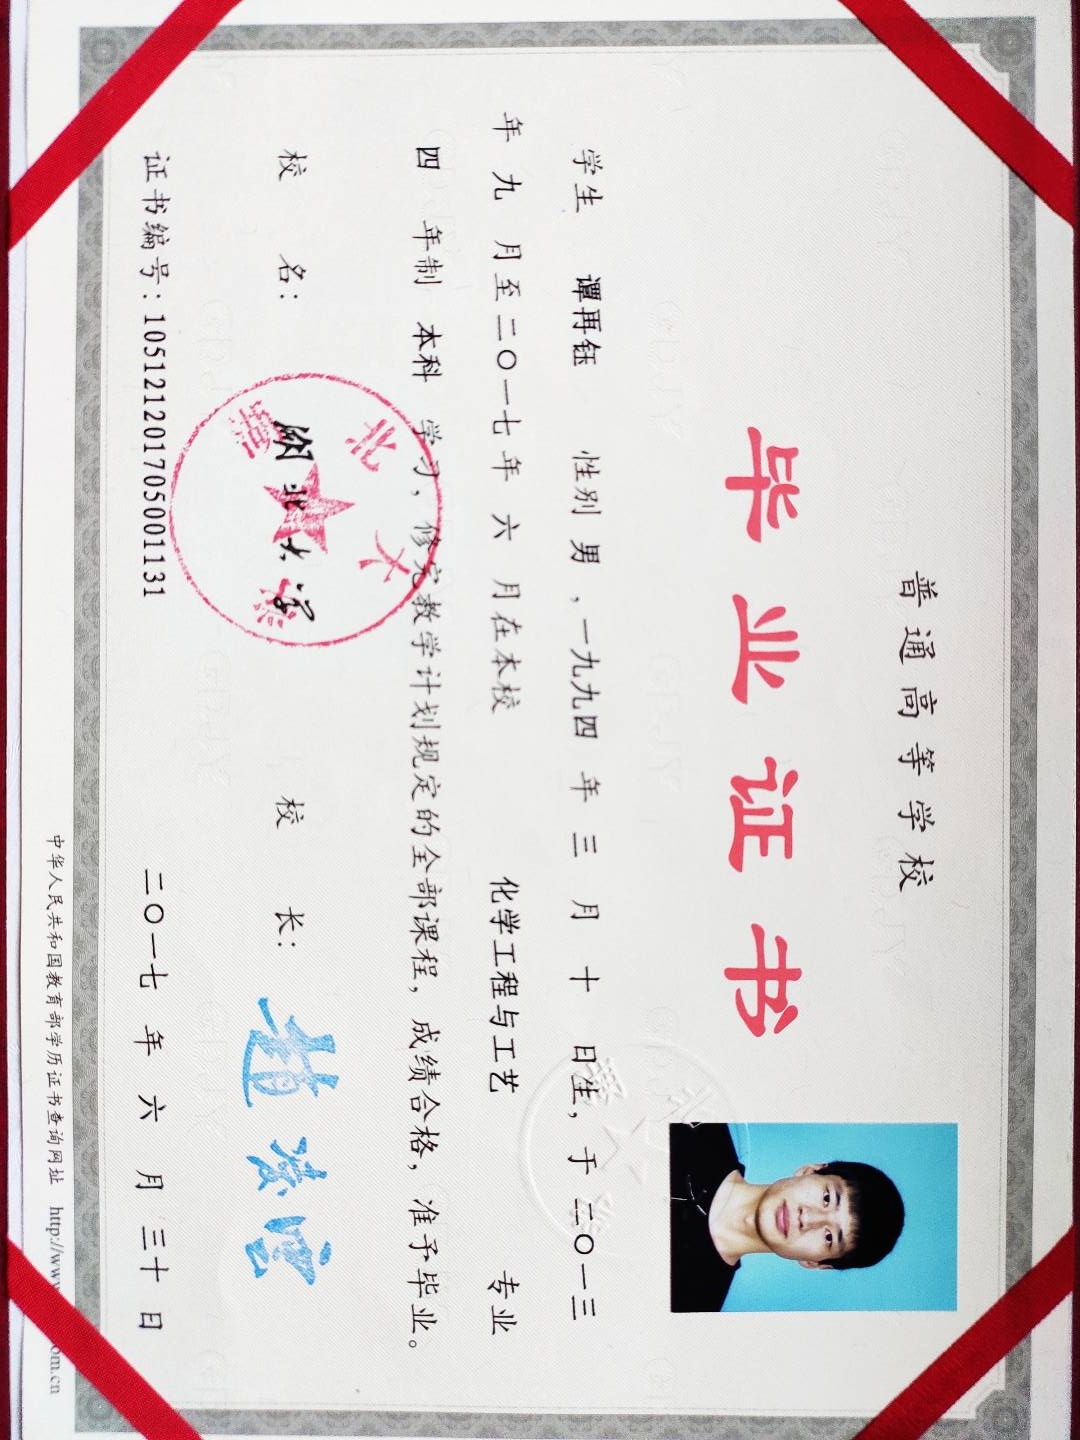 普通高等学校
毕业证书
学生 谭再钰 性别 男，一九九四 年 三 月 十 日生，于 二〇一三
年 九 月至二〇一七年 六 月在本校 化学工程与工艺 专业
四 年制 本科 学习，修完教学计划规定的全部课程，成绩合格，准予毕业。
校 名： 湖北大学 校 长：
湖北大学
证书编号：105121201705001131 二〇一七 年 六 月 三十 日
中华人民共和国教育部学历证书查询网址 http://www. om.cn